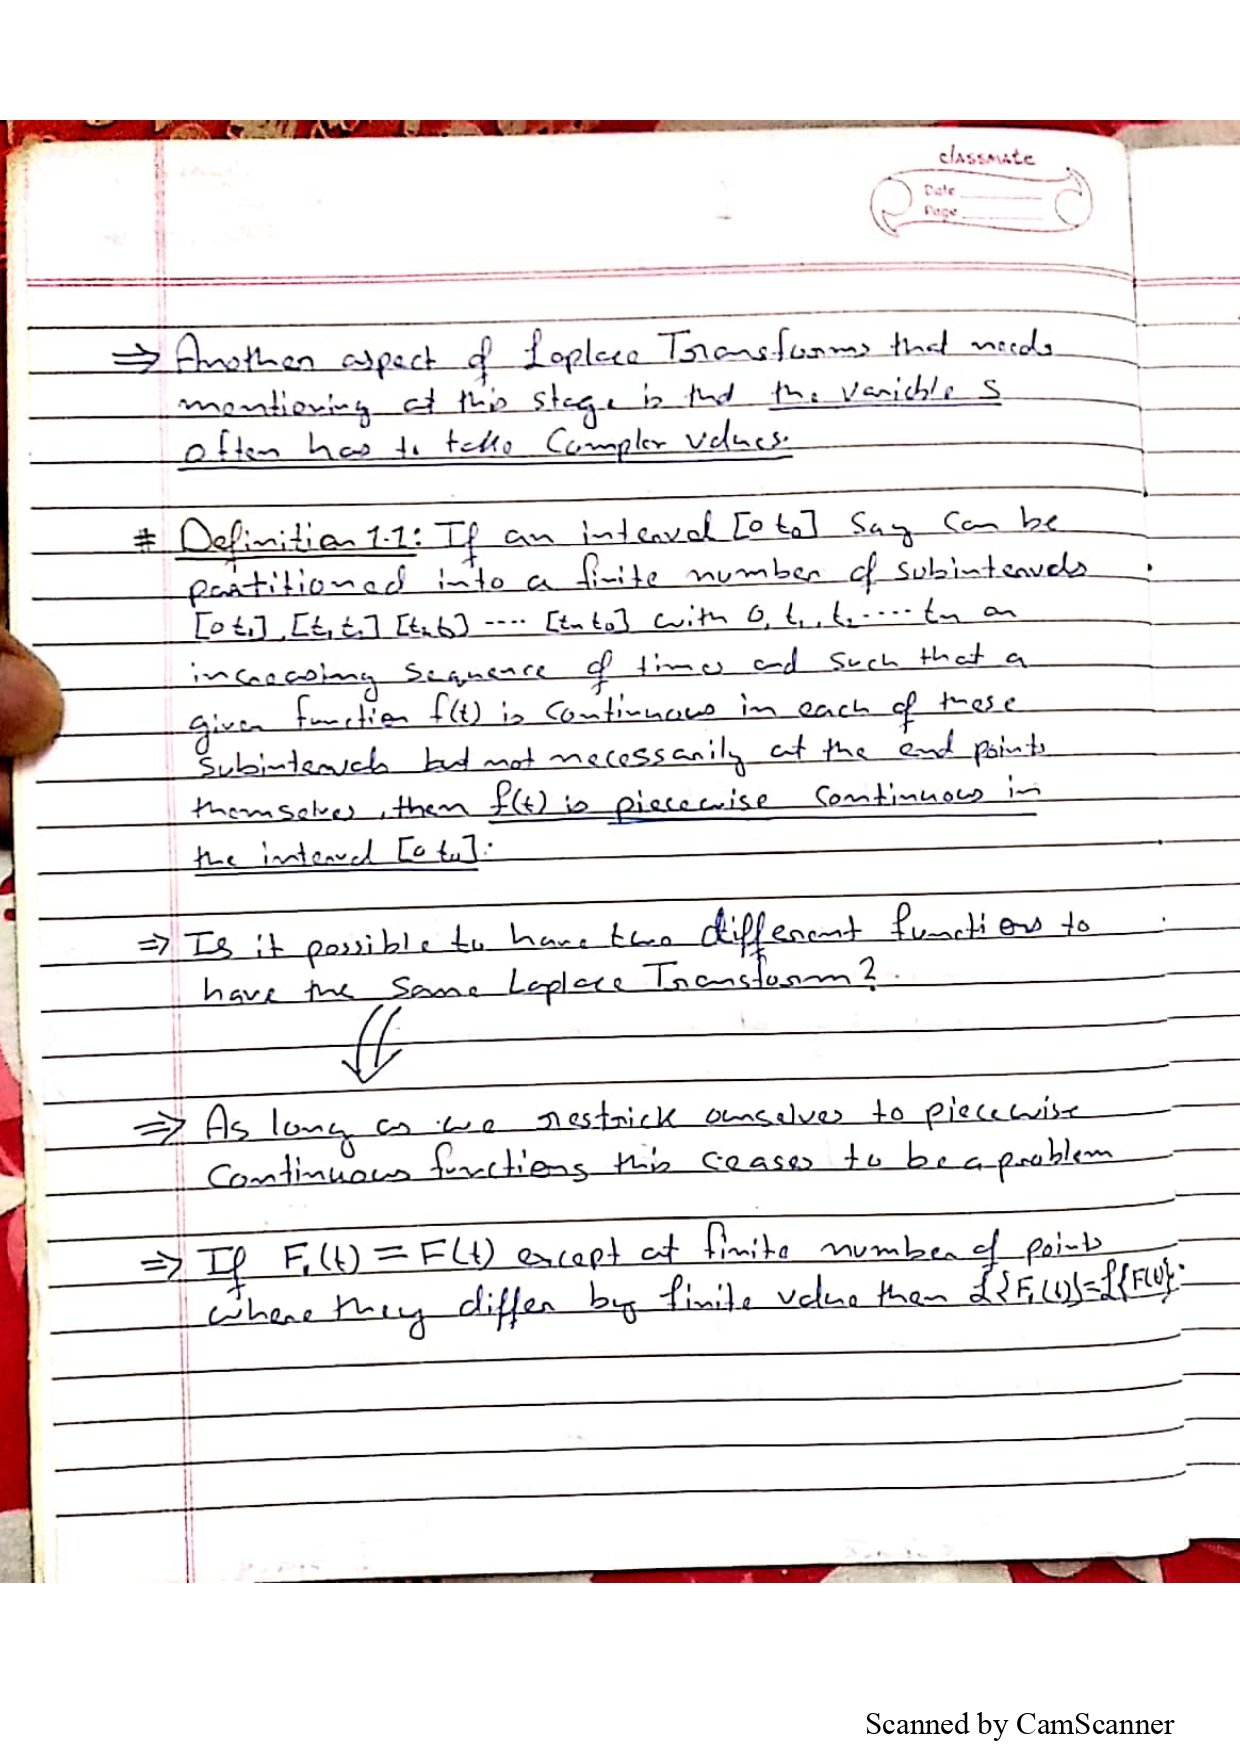 classmate
Date
Page
⇒ Another aspect of Laplace Transforms that needs
mentioning at this stage is that the variable s
often has to take Complex values.
# Definition 1.1: If an interval [0 t₀] say can be
partitioned into a finite number of subintervals
[0 t₁], [t₁ t₂] [t₂ t₃] ---- [tn t₀] with 0, t₁, t₂ ..... tn an
increasing sequence of times and such that a
given function f(t) is continuous in each of these
subintervals but not necessarily at the end points
themselves, then f(t) is piecewise continuous in
the interval [0 t₀].
⇒ Is it possible to have two different functions to
have the same Laplace Transform?
⇒ As long as we restrick ourselves to piecewise
Continuous functions this ceases to be a problem
⇒ If F₁(t) = F(t) except at finite number of points
where they differ by finite value then £{F₁(t)}=£{F(t)}.
Scanned by CamScanner